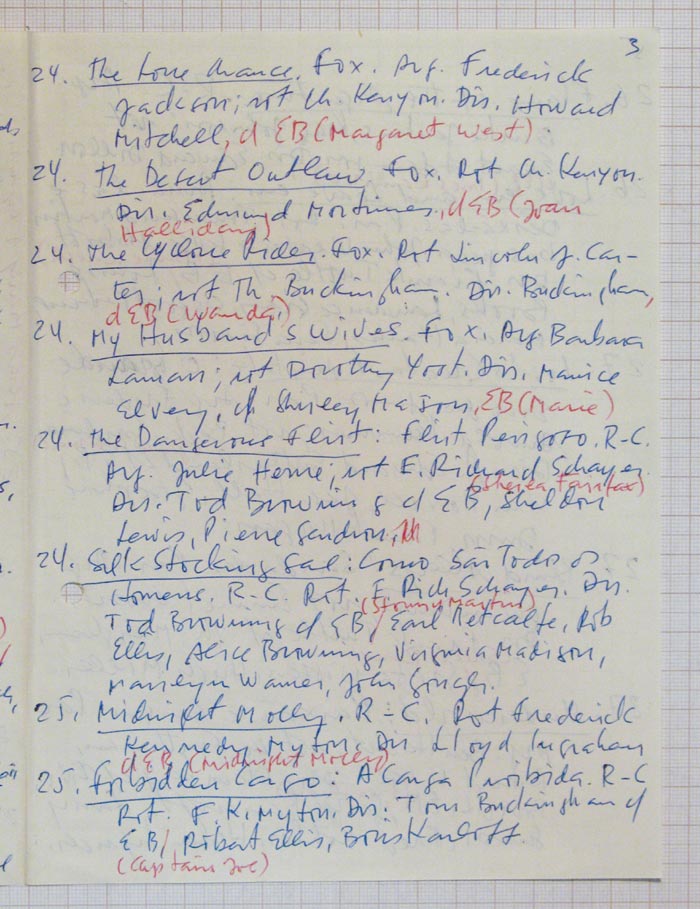 3
24. The Lone Chance. Fox. Arg. Frederick
Jackson; rot Ch. Kenyon. Dir. Howard
Mitchell, c/ EB (Margaret West).
24. The Desert Outlaw. Fox. Rot Ch. Kenyon.
Dir. Edmund Mortimer, c/ EB (Joan
Halliday)
24. The Cyclone Rider. Fox. Rot Lincoln J. Car-
ter; rot Th. Buckingham. Dir. Buckingham,
c/ EB (Wanda)
24. My Husband's Wives. Fox. Arg Barbara
Lamarr; rot Dorothy Yost. Dir. Maurice
Elvey, c/ Shirley Mason, EB (Marie)
24. The Dangerous Flirt: Flirt Perigoso. R-C.
Arg. Julie Herne; rot E. Richard Schayer.
(Sheila Fairfax)
Dir. Tod Browning c/ EB, Sheldon
Lewis, Pierre Gendron,
24. Silk Stocking Sal: Como São Todos os
Homens. R-C. Rot. E. Rich Schayer. Dir.
(Stormy Martin)
Tod Browning c/ EB/ Earl Metcalfe, Rob
Ellis, Alice Browning, Virginia Madison,
Marilyn Warner, John Gough.
25. Midnight Molly. R-C. Rot Frederick
Kennedy Myton. Dir Lloyd Ingraham
c/ EB (Midnight Molly)
25. Forbidden Cargo: A Carga Proibida. R-C
Rot. F. K. Myton. Dir: Tom Buckingham c/
EB/ Robert Ellis, Boris Karloff.
(Captain Joe)